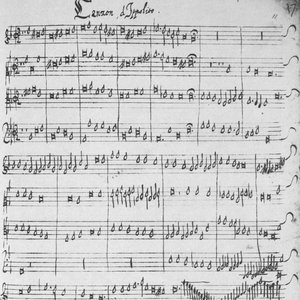 Canzon d'Ippolito.